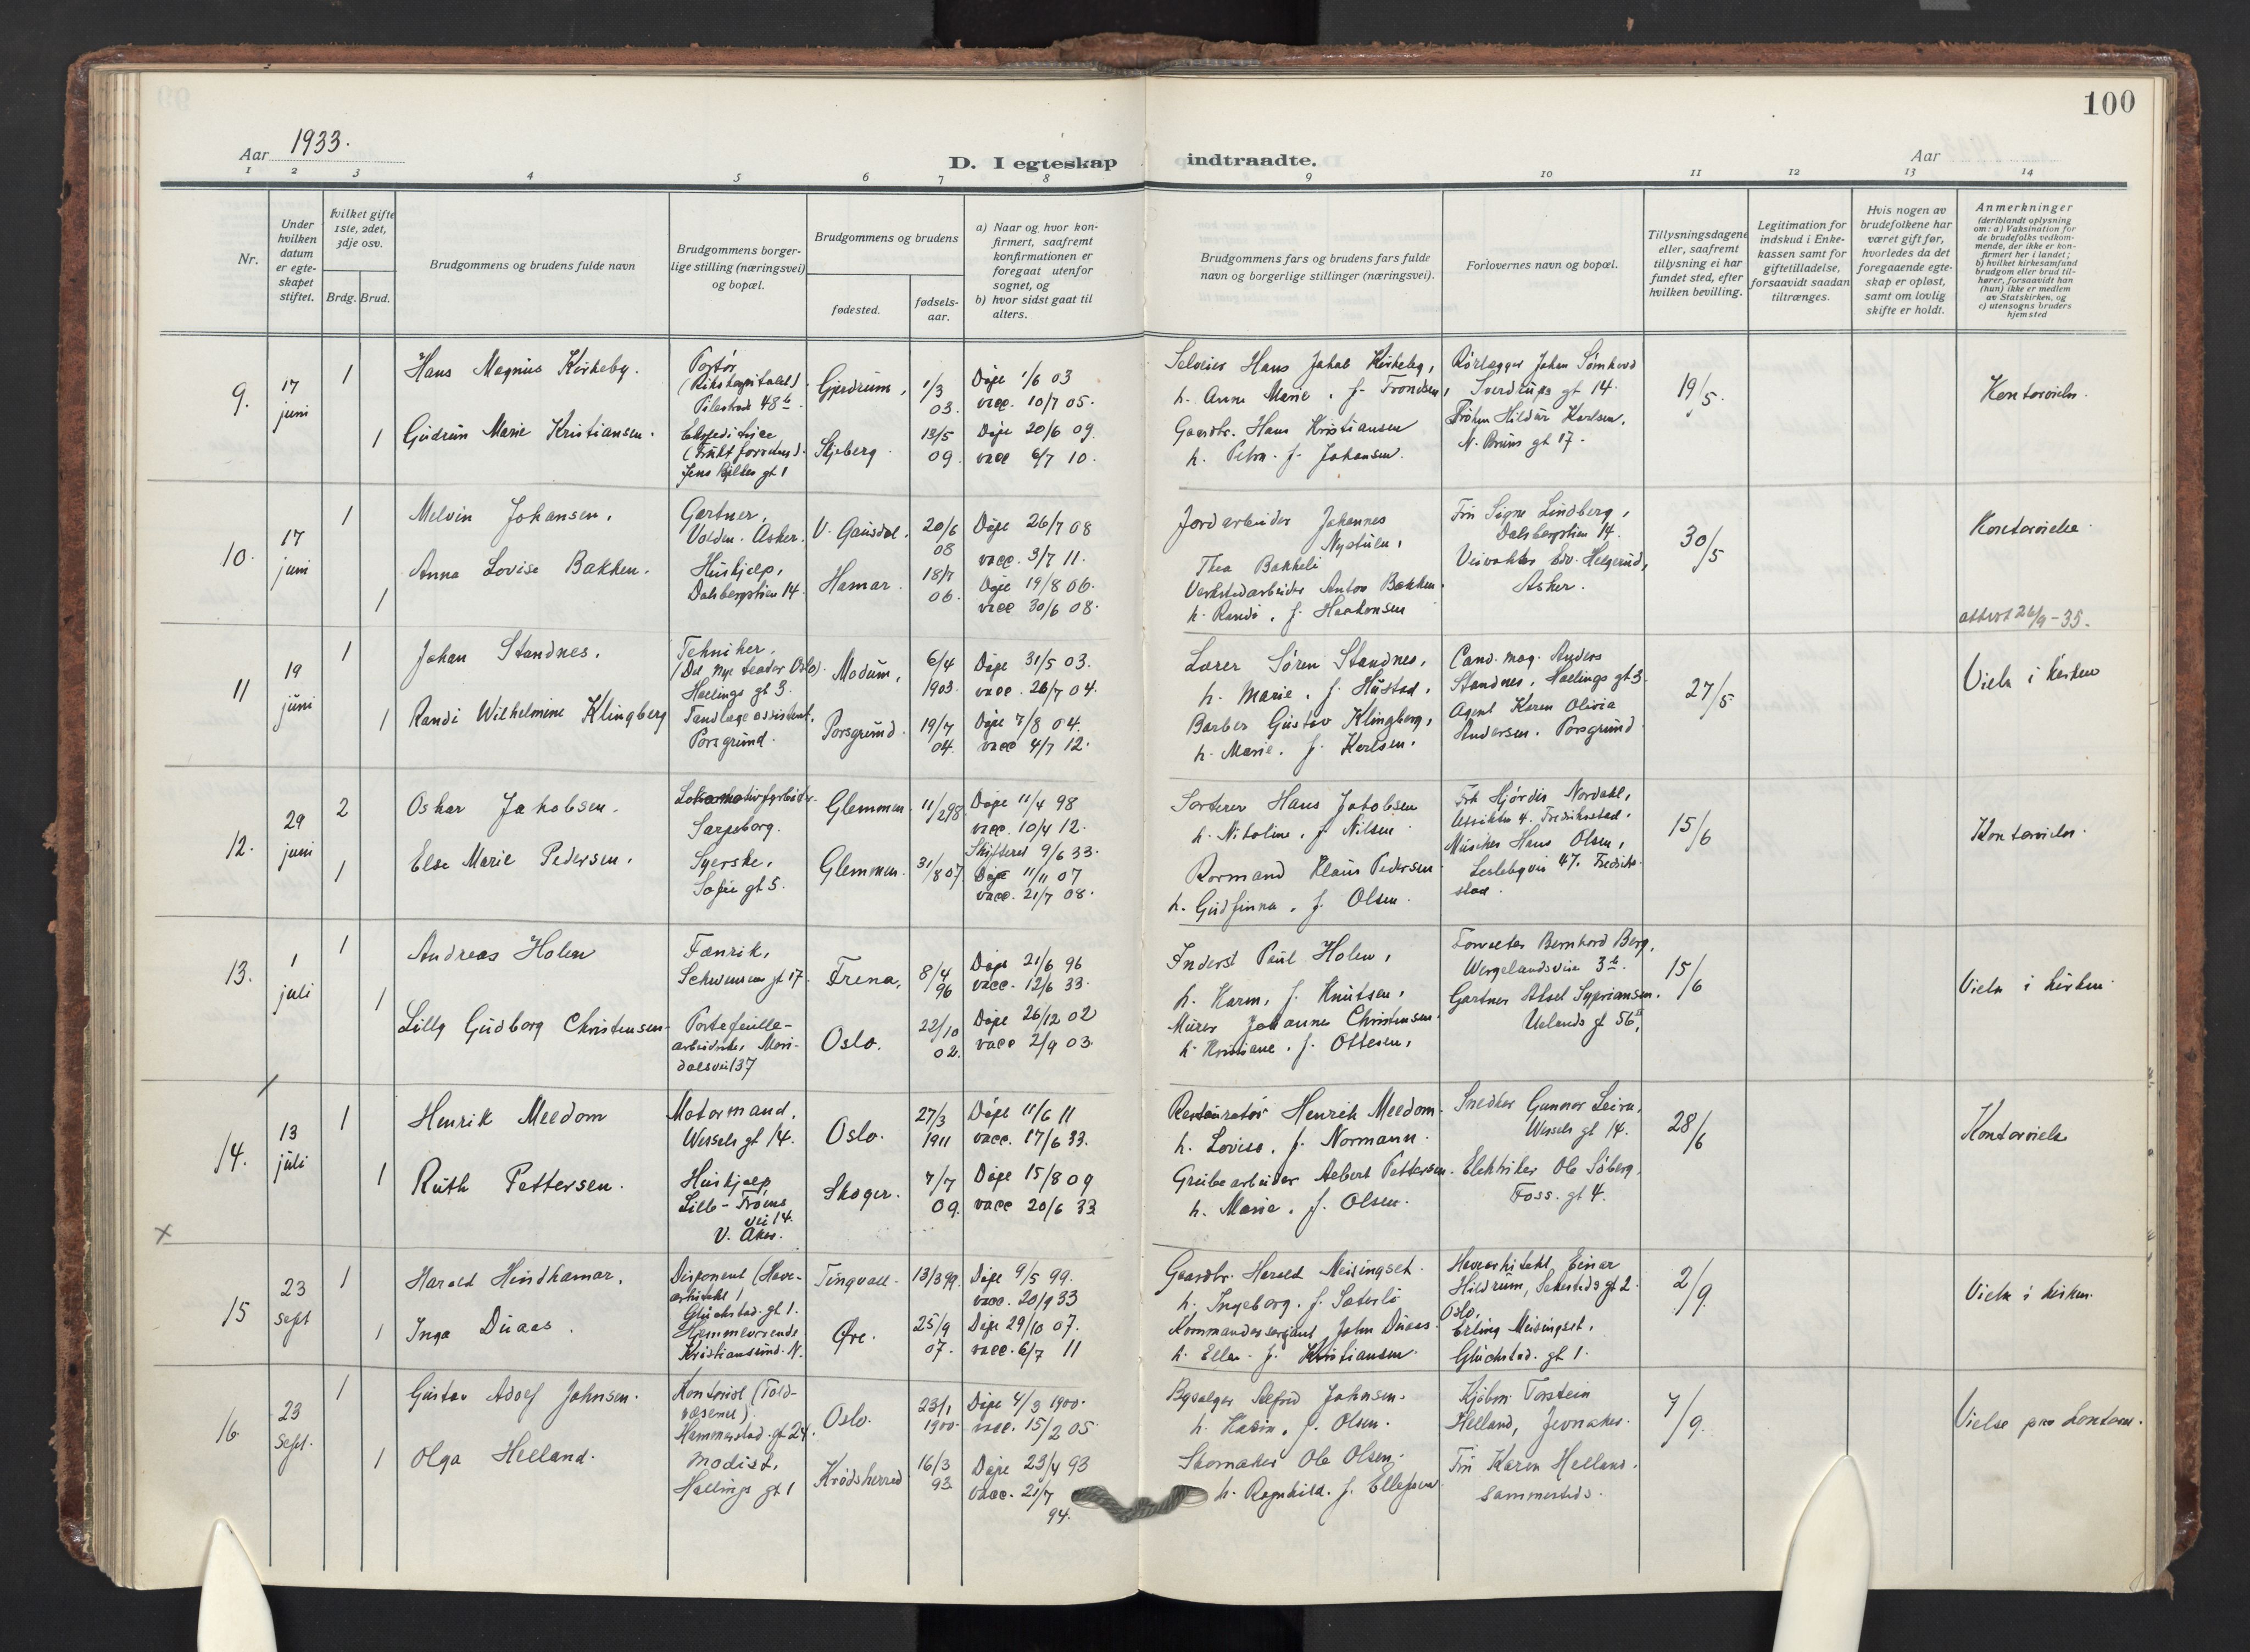 100
Aar 1933.
D. I egteskap indtraadte.
Aar
1 2 3 4 5 6 7 8 9 10 11 12 13 14
Nr.
Under
hvilken
datum
er egte-
skapet
stiftet.
Hvilket gifte
1ste, 2det,
3dje osv.
Brdg. Brud.
Brudgommens og brudens fulde navn
Brudgommens borger-
lige stilling (næringsvei)
og bopæl.
Brudgommens og brudens
fødested.
fødsels-
aar.
a) Naar og hvor kon-
firmert, saafremt
konfirmationen er
foregaat utenfor
sognet, og
b) hvor sidst gaat til
alters.
Brudgommens fars og brudens fars fulde
navn og borgerlige stillinger (næringsvei).
Forlovernes navn og bopæl.
Tillysningsdagene
eller, saafremt
tillysning ei har
fundet sted, efter
hvilken bevilling.
Legitimation for
indskud i Enke-
kassen samt for
giftetilladelse,
forsaavidt saadan
tiltrænges.
Hvis nogen av
brudefolkene har
været gift før,
hvorledes da det
foregaaende egte-
skap er opløst,
samt om lovlig
skifte er holdt.
Anmerkninger
(deriblandt oplysning
om: a) Vaksination for
de brudefolks vedkom-
mende, der ikke er kon-
firmert her i landet;
b) hvilket kirkesamfund
brudgom eller brud til-
hører, forsaavidt han
(hun) ikke er medlem
av Statskirken, og
c) utensogns bruders
hjemsted
9.
17
juni
1
Hans Magnus Kirkeby.
Portør
(Rikshospitalet).
Pilestræde 48 b
Gjerdrum,
1/3
03.
Døpt 1/6 03
vacc. 10/7 05.
Selveier Hans Jakob Kirkeby,
h. Anne Marie, f. Frondsen,
Rørlegger Johan
Sverdrups gt 14.
19/5.
1
Gudrun Marie Kristiansen.
Ekspeditrice
Skjeberg.
13/5
09.
Døpt 20/6 09.
vacc 6/7 10.
Gaardbr. Hans Kristiansen
h. Petra. f. Johansen.
Frøken Hildur Karlsen,
N. Bruns gt 17.
10.
17
juni
1
Melvin Johansen,
Gartner,
Volden. Asker.
V. Gausdal.
20/6
08
Døpt 26/7 08
vacc. 3/7 11.
Jordarbeider Johannes
Nystuen,
Thea Bakkeli
Fru Signe Lindberg,
Dalsbergstien 14.
30/5
Kontorvielse.
1
Anna Lovise Bakken.
Hushjelp,
Dalsbergstien 14.
Hamar.
18/7
06.
Døpt 19/8 06.
vacc 30/6 08.
Verkstedarbeider Anton Bakken.
h. Randi, f. Haakonsen
Veivokter Edv. Helgerud,
Asker.
attest 26/9-35.
11
19
juni
1
Johan Standnes.
Tekniker,
(Det Nye teater Oslo).
Hællings gt 3.
Modum,
6/4
1903.
Døpt 31/5 03.
vacc. 26/7 04.
Lærer Søren Standnes,
h. Marie, f. Hustad,
Cand. mag. Anders
Standnes, Hællings gt 3.
27/5
Vielse i kirken
1
Randi Wilhelmine Klingberg
Tandlægeassistent,
Porsgrund.
Porsgrund.
19/7
04.
Døpt 7/8 04.
vacc 4/7 12.
Barber Gustav Klingberg,
h. Marie, f. Karlsen.
Agent Karen Olivia
Andersen. Porsgrund.
12.
29
juni
2
Oskar Jakobsen.
Sarpsborg.
Glemmen.
11/2 98.
Døpt 11/4 98
vacc. 10/4 12.
Skifteret 9/6 33.
Sorterer Hans Jakobsen
h. Nikoline, f. Nilsen.
Frk Hjørdis Nordahl,
Fredrikstad.
15/6
1
Else Marie Pedersen,
Syerske,
Sofie gt 5.
Glemmen.
31/8 07
Døpt 11/11 07
vacc. 21/7 08.
Rormand Klaus Pedersen.
h. Gudfinna, f. Olsen.
Musiker Hans Olsen,
47. Fredrik-
stad.
13.
1
juli
1
Andreas Holen
Fænrik,
Schwensens gt 17.
Fræna,
8/4
96
Døpt 21/6 96
vacc. 12/6 33.
Inderst Paul Holen,
h. Karen, f. Knutsen,
Forvalter Bernhard Berg,
Wergelandsveien 3 b.
15/6
Vielse i kirken.
1
Lilly Gudborg Christensen
Portefeuille-
arbeiderske, Mari-
dalsvei 137
Oslo.
22/10
02.
Døpt 26/12 02
vacc 2/9 03.
Murer Johannes Christensen.
h. Kristiane, f. Ottesen,
Gartner Aksel Sypriansen.
Uelands gt 56,
14.
13
juli
1
Henrik Meedom
Motormand.
Wessels gt 14.
Oslo.
27/3
1911
Døpt 11/6 11
vacc. 17/6 33.
Restauratør Henrik Meedom.
h. Lovise, f. Normann.
Snedker Gunnar Leira,
Wessels gt 14.
28/6
Kontorvielse
1
Ruth Pettersen.
Hushjelp
Lille-Frøens
vei 14.
V. Aker.
Skoger.
7/7
09.
Døpt 15/8 09
vacc 20/6 33
Grubearbeider Albert Pettersen.
h. Marie, f. Olsen.
Elektriker Ole Söberg,
Foss. gt 4.
15
23
sept
1
Harald Hindhamar,
Disponent (Have-
arkitekt)
Glückstad. gt 1.
Tingvoll.
13/3 99.
Døpt 9/5 99.
vacc. 20/9 33
Gaardbr. Harald Meisingset.
h. Ingeborg, f. Sæterli
Havearkitekt Einar
Hildrum, Sehesteds gt 2.
Oslo.
2/9.
Vielse i kirken.
1
Inga Duaas.
Hjemmeværende
Kristiansund. N.
Øre.
25/9
07.
Døpt 29/10 07.
vacc. 6/7 11
Kommandersersjant John Duaas.
h. Ellen f. Kristiansen.
Erling Meisingset,
Glückstad. gt 1.
16.
23
Sept.
1
Gustav Adolf Johnsen.
Kontorist (Told-
væsenet).
Hammerstad. gt 24.
Oslo.
23/1
1900.
Døpt 4/3 1900.
vacc. 15/2 05.
Bysælger Alfred Johnsen.
h. Karin, f. Olsen.
Kjøbm. Torstein
Helland, Jevnaker.
7/9.
1
Olga Helland.
Modist,
Hællings gt 1
Krødsherred
16/3
93.
Døpt 23/4 93
vacc. 21/7
94.
Skomaker Ole Olsen.
h. Ragnhild. f. Ellefsen
Fru Karen Helland.
sammesteds.